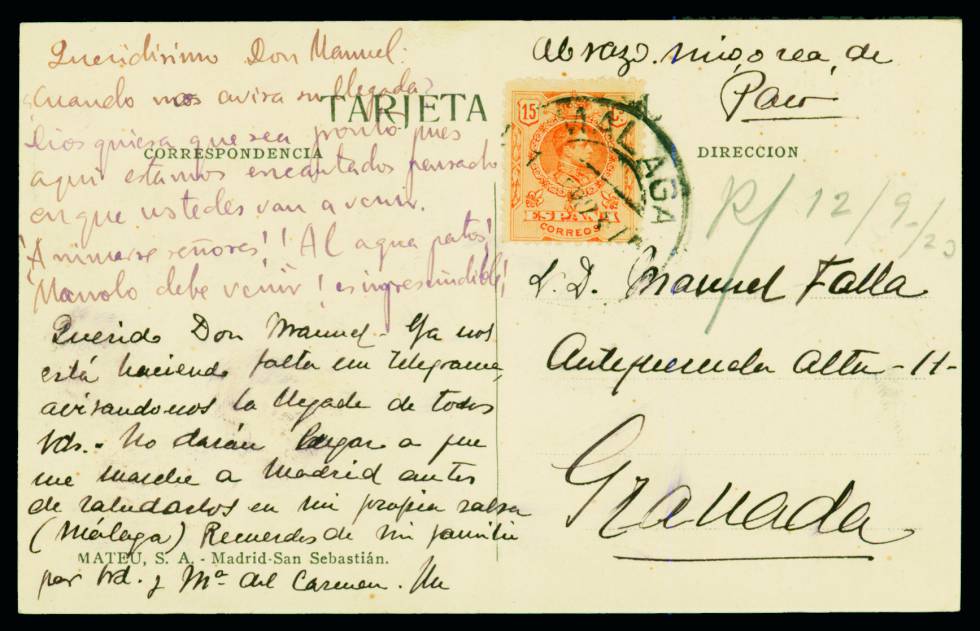 Queridisimo Don Manuel:
¿Cuando nos avisa su llegada?
TARJETA
Dios quiera que sea pronto pues
CORRESPONDENCIA
aqui estamos encantados pensando
en que ustedes van a venir.
¡Animarse señores!! Al agua patos!
¡Manolo debe venir! es imprescindible!
Querido Don Manuel. Ya nos
está haciendo falta un telegrama,
avisandonos la llegada de todos
Vds. No darán lugar a que
me marche a Madrid antes
de saludarlos en mi propia salsa
(Málaga) Recuerdos de mi familia
MATEU, S. A. - Madrid-San Sebastián.
par Vd. y Mª del Carmen. Un
abrazo mio, o sea, de
Paco
15
MALAGA
ESPAÑA
CORREOS
DIRECCION
R/ 12/9-/23
S. D. Manuel Falla
Antequeruela Alta - 11 -
Granada